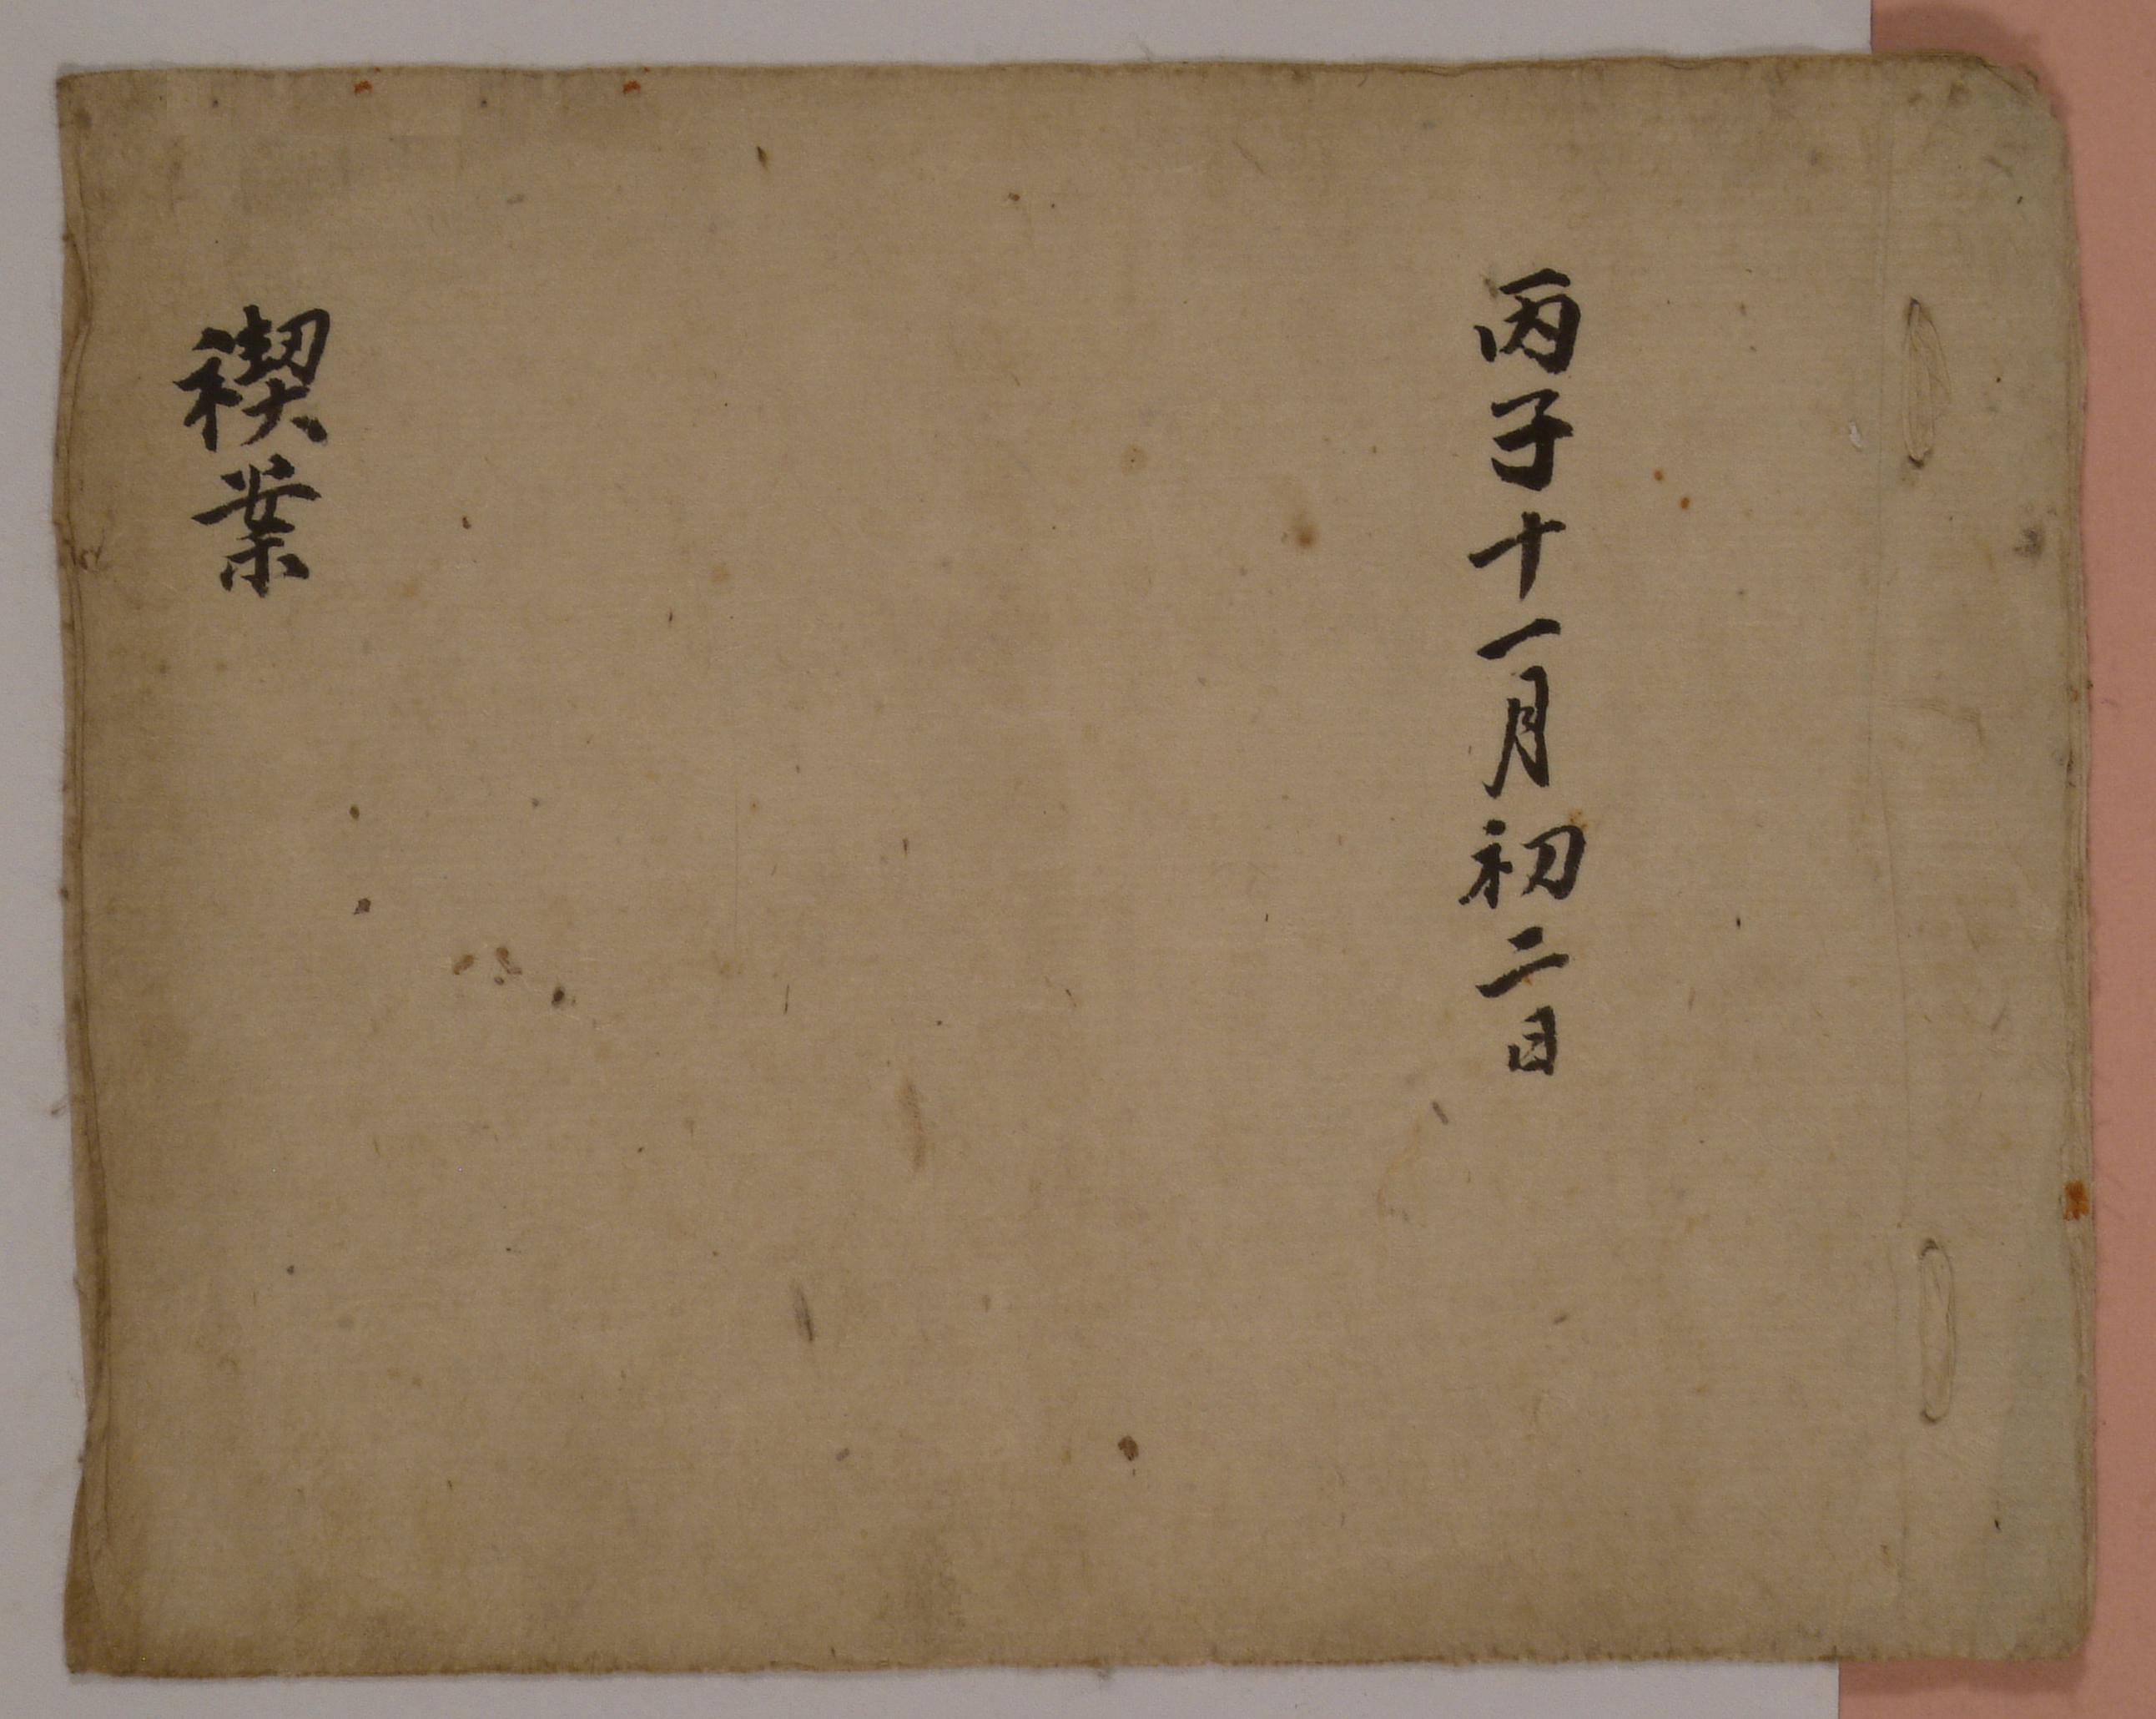 丙子十一月初二日
禊案